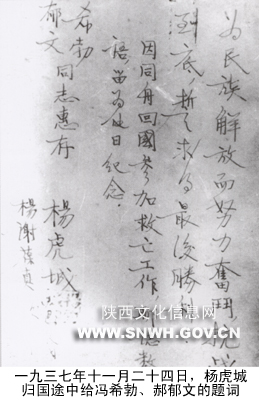 为民族解放而努力奮鬥抗战
到底誓求得最後勝利
因同舟回國参加救亡工作
語留為後日紀念.
希勃
郁文同志惠存
楊虎城
楊謝葆貞
陕西文化信息网
WWW.SNWH.GOV.CN
一九三七年十一月二十四日，杨虎城
归国途中给冯希勃、郝郁文的题词